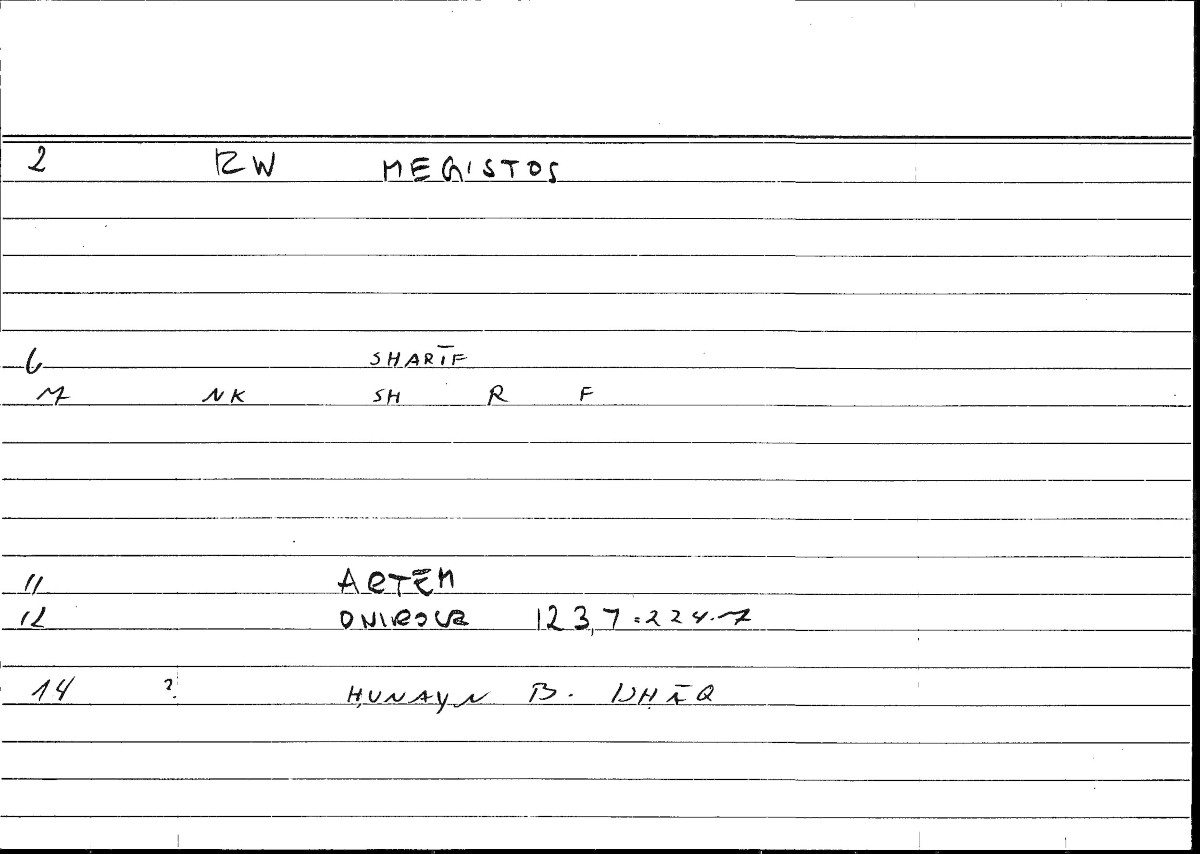 2 RW MEGISTOS
6 SHARĪF
7 NK SH R F
11 ARTĒM
12 ONIROCR 123,7 = 224.7
14 ? ḤUNAYN B. ISḤĀQ